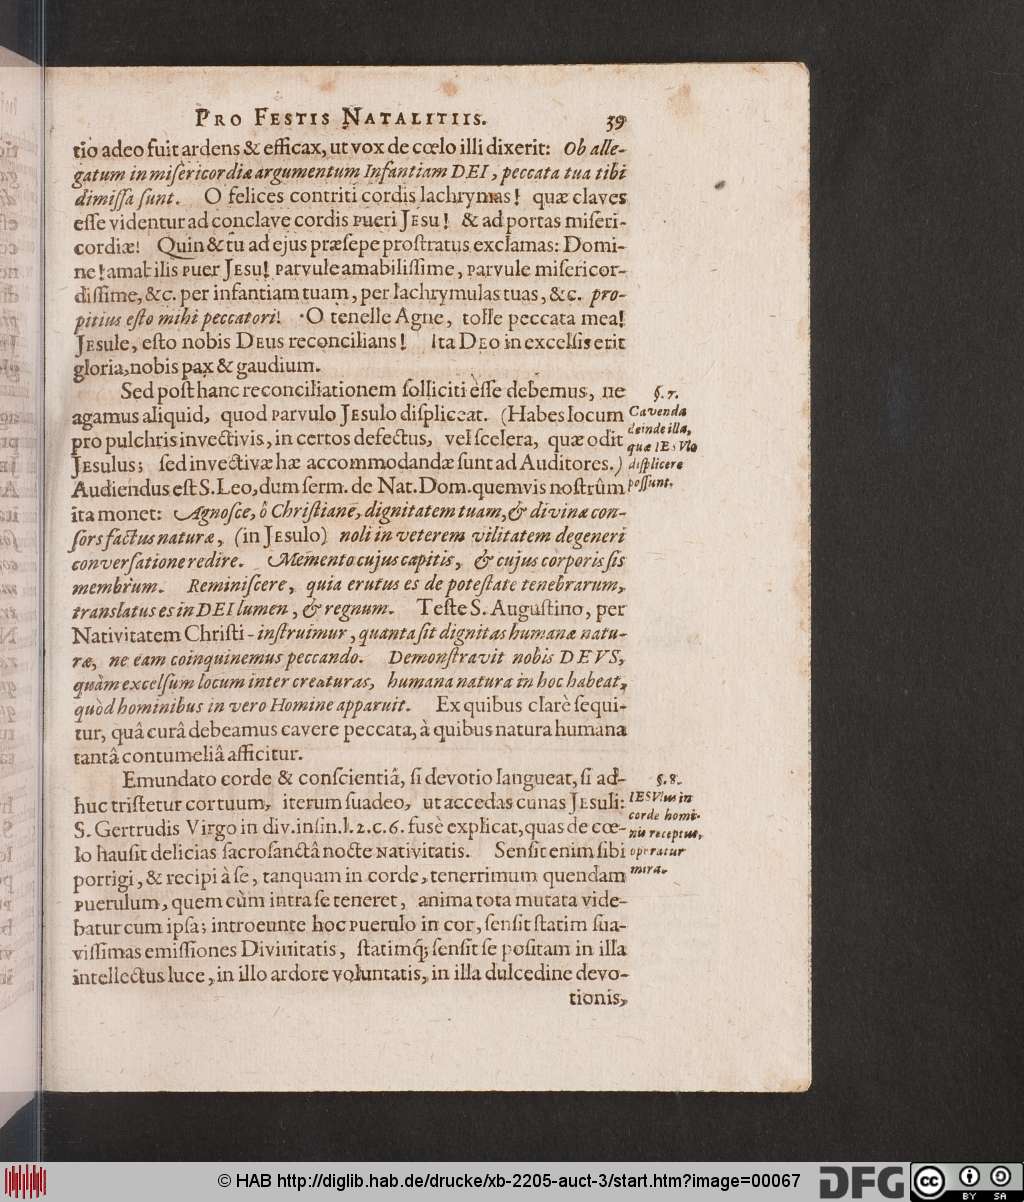 PRO FESTIS NATALITIIS. 39
tio adeo fuit ardens & efficax, ut vox de cœlo illi dixerit: Ob alle-
gatum in misericordiæ argumentum Infantiam DEI, peccata tua tibi
dimiſſa ſunt. O felices contriti cordis lachrymas! quæ claves
eſſe videntur ad conclave cordis PUERI JESU! & ad portas miſeri-
cordiæ! Quin & tu ad ejus præſepe proſtratus exclamas: Domi-
ne! amabilis PUER JESU! PARVULE amabiliſſime, PARVULE miſericor-
diſſime, &c. per infantiam tuam, per lachrymulas tuas, &c. pro-
pitius eſto mihi peccatori! O tenelle Agne, tolle peccata mea!
JESULE, eſto nobis DEUS reconcilians! Ita DEO in excelſis erit
gloria, nobis pax & gaudium.
Sed poſt hanc reconciliationem ſolliciti èſſe debemus, ne
agamus aliquid, quod PARVULO JESULO diſpliceat. (Habes locum
pro pulchris invectivis, in certos defectus, vel ſcelera, quæ odit
JESULUS; ſed invectivæ hæ accommodandæ ſunt ad Auditores.)
Audiendus eſt S. Leo, dum ſerm. de Nat. Dom. quemvis noſtrûm
ita monet: Agnoſce, ô Chriſtiane, dignitatem tuam, & divinæ con-
ſors factus naturæ, (in JESULO) noli in veterem vilitatem degeneri
converſatione redire. Memento cujus capitis, & cujus corporis ſis
membrum. Reminiſcere, quia erutus es de poteſtate tenebrarum,
translatus es in DEI lumen, & regnum. Teſte S. Auguſtino, per
Nativitatem Chriſti - inſtruimur, quanta ſit dignitas humanæ natu-
ræ, ne eam coinquinemus peccando. Demonſtravit nobis DEVS,
quàm excelſum locum inter creaturas, humana natura in hoc habeat,
quòd hominibus in vero Homine apparuit. Ex quibus clarè ſequi-
tur, quâ curâ debeamus cavere peccata, à quibus natura humana
tantâ contumeliâ afficitur.
§. 7.
Cavenda
deinde illa,
quæ IESVlo
diſplicere
poſſunt.
Emundato corde & conſcientiâ, ſi devotio langueat, ſi ad-
huc triſtetur cor tuum, iterum ſuadeo, ut accedas cunas JESULI:
S. Gertrudis Virgo in div. inſin. l. 2. c. 6. fusè explicat, quas de cœ-
lo hauſit delicias ſacroſanctâ nocte NATIVITATIS. Senſit enim ſibi
porrigi, & recipi à ſe, tanquam in corde, tenerrimum quendam
PUERULUM, quem cùm intra ſe teneret, anima tota mutata vide-
batur cum ipſa; introeunte hoc PUERULO in cor, ſenſit ſtatim ſua-
viſſimas emiſſiones Divinitatis, ſtatimq́; ſenſit ſe poſitam in illa
intellectus luce, in illo ardore voluntatis, in illa dulcedine devo-
tionis,
§. 8.
IESVlus in
corde homi-
nis receptus,
operatur
mira.
© HAB http://diglib.hab.de/drucke/xb-2205-auct-3/start.htm?image=00067
DFG
cc
BY SA